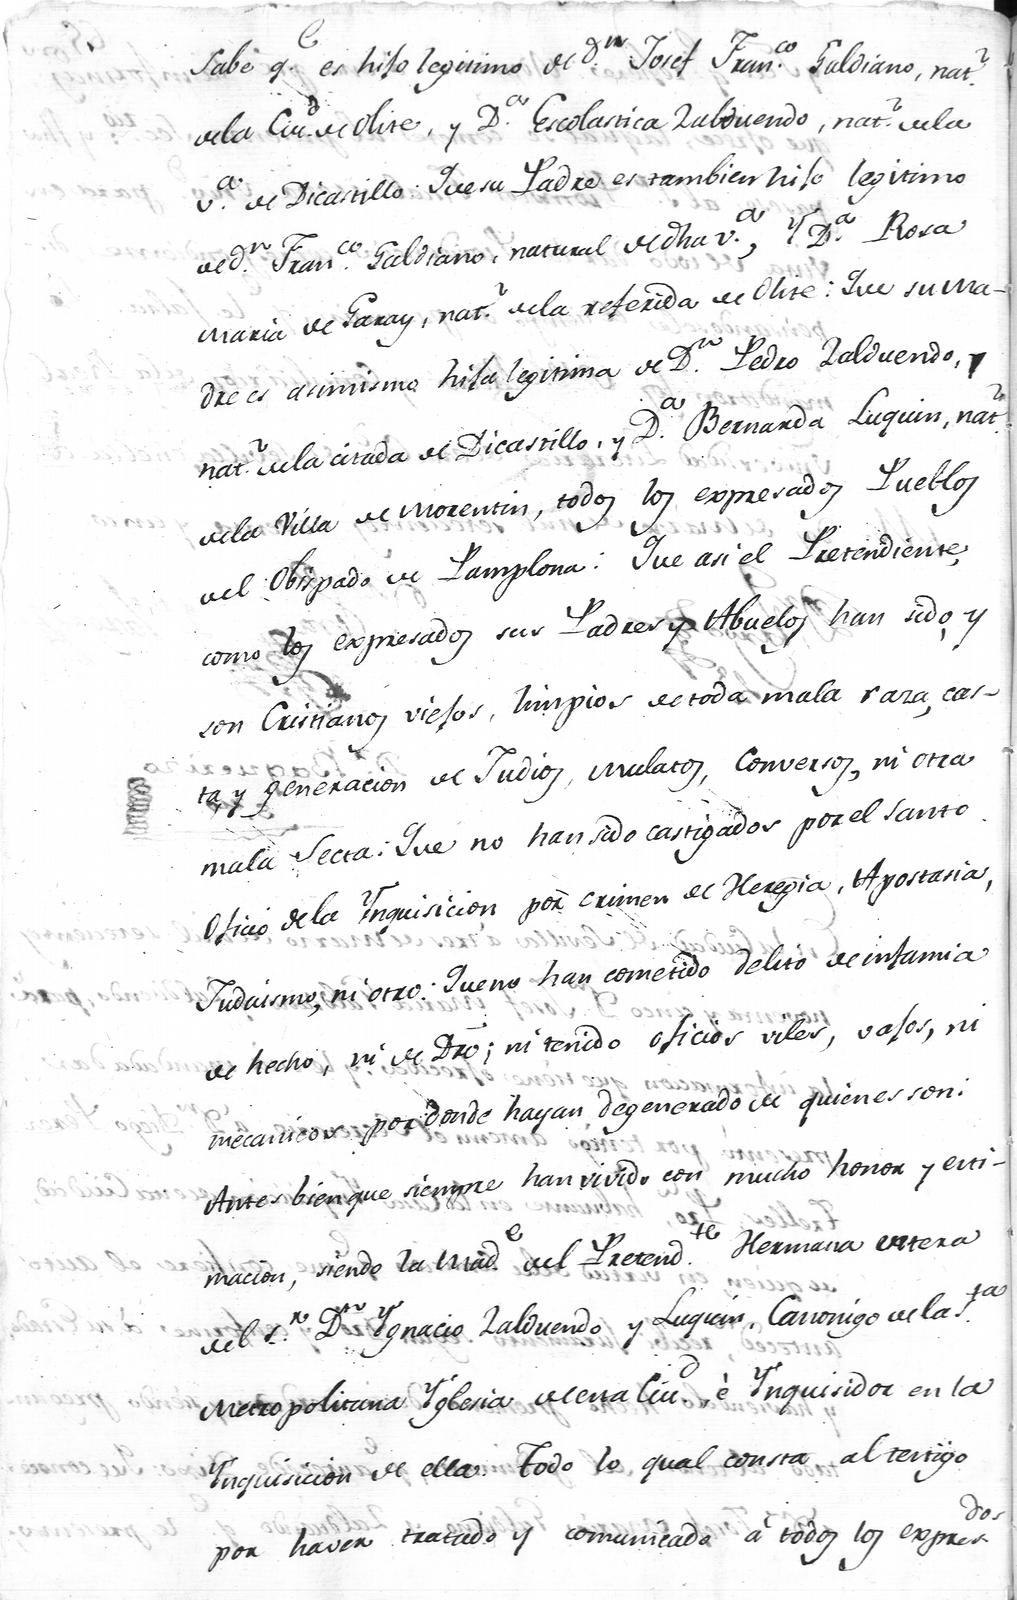 Sabe q.e es hijo legitimo de d.n Josef Fran.co Galdiano, nat.l
de la Ciu.d de Olite, y D.a Escolastica Zalduendo, nat.l de la
v.a de Dicastillo: Que su Padre es tambien hijo legitimo
de d.n Fran.co Galdiano, natural de dha v.a, y D.a Rosa
Maria de Garay, nat.l de la referida de Olite: Que su Ma-
dre es asimismo hija legitima de D.n Pedro Zalduendo, y
nat.l de la citada de Dicastillo, y D.a Bernarda Luquin, nat.l
de la Villa de Morentin, todos los expresados Pueblos
del Obispado de Pamplona: Que asi el Pretendiente,
como los expresados sus Padres y Abuelos han sido, y
son Cristianos viejos, limpios de toda mala raza, cas-
ta, y generacion de Judios, Mulatos, Conversos, ni otra
mala Secta: Que no han sido castigados por el Santo
Oficio de la Ynquisicion por crimen de Heregia, Apostasia,
Judaismo, ni otro: Que no han cometido delito de infamia
de hecho, ni de Dro; ni tenido oficios viles, vajos, ni
mecanicos por donde hayan degenerado de quienes son:
Antes bien que siempre han vivido con mucho honor y esti-
macion, siendo la Mad.e del Pretend.te Hermana entera
del S.r D.n Ygnacio Zalduendo y Luquin, Canonigo de la S.ta
Metropolitana Yglesia de esta Ciu.d, è Ynquisidor en la
Ynquisicion de ella. Todo lo qual consta al testigo
por haver tratado y comunicado à todos los expresados